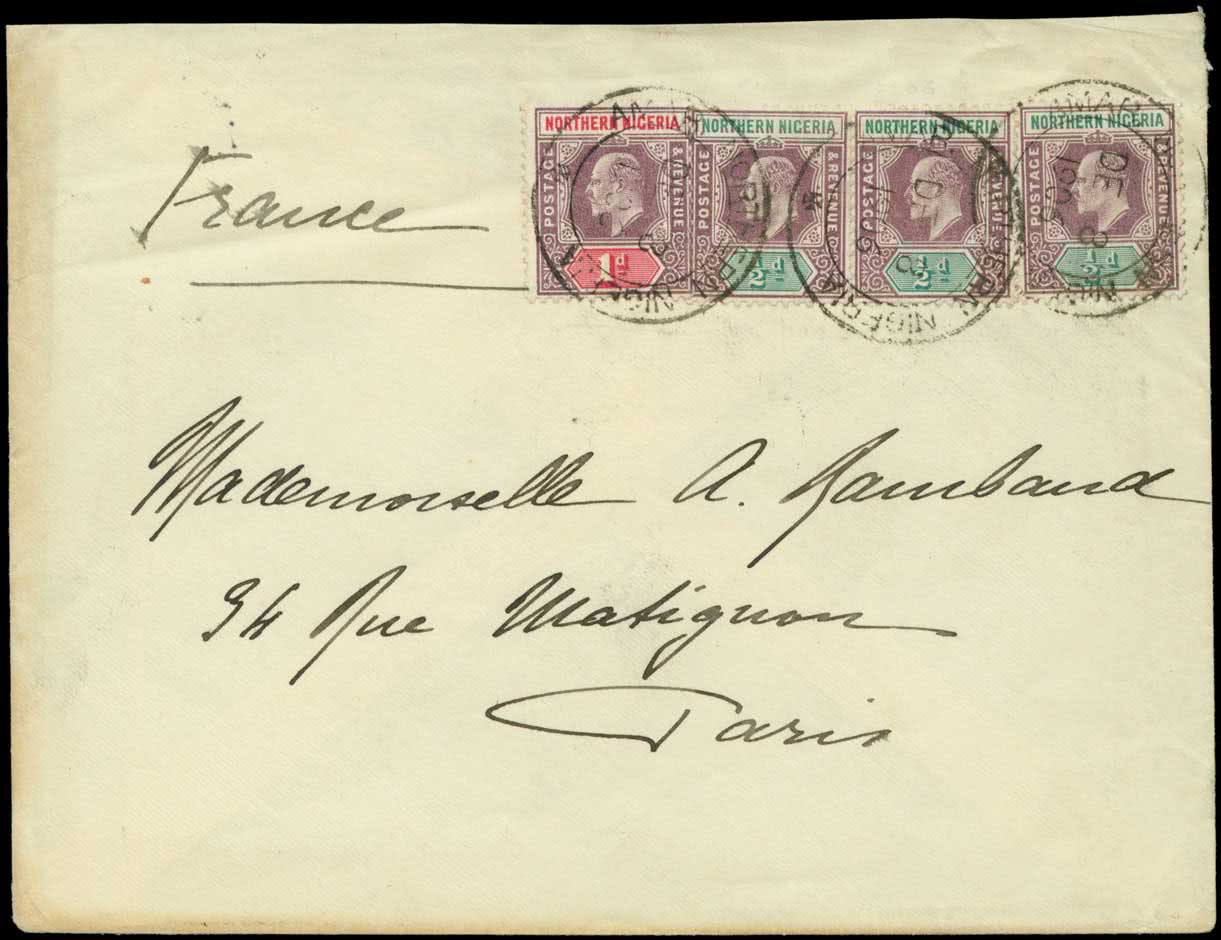 France
NORTHERN NIGERIA
POSTAGE & REVENUE
1d
NORTHERN NIGERIA
POSTAGE & REVENUE
½d
NORTHERN NIGERIA
POSTAGE & REVENUE
½d
NORTHERN NIGERIA
POSTAGE & REVENUE
½d
AMAR
DE
8
NIGERIA
Mademoiselle A. Rambaud
34 Rue Matignon
Paris